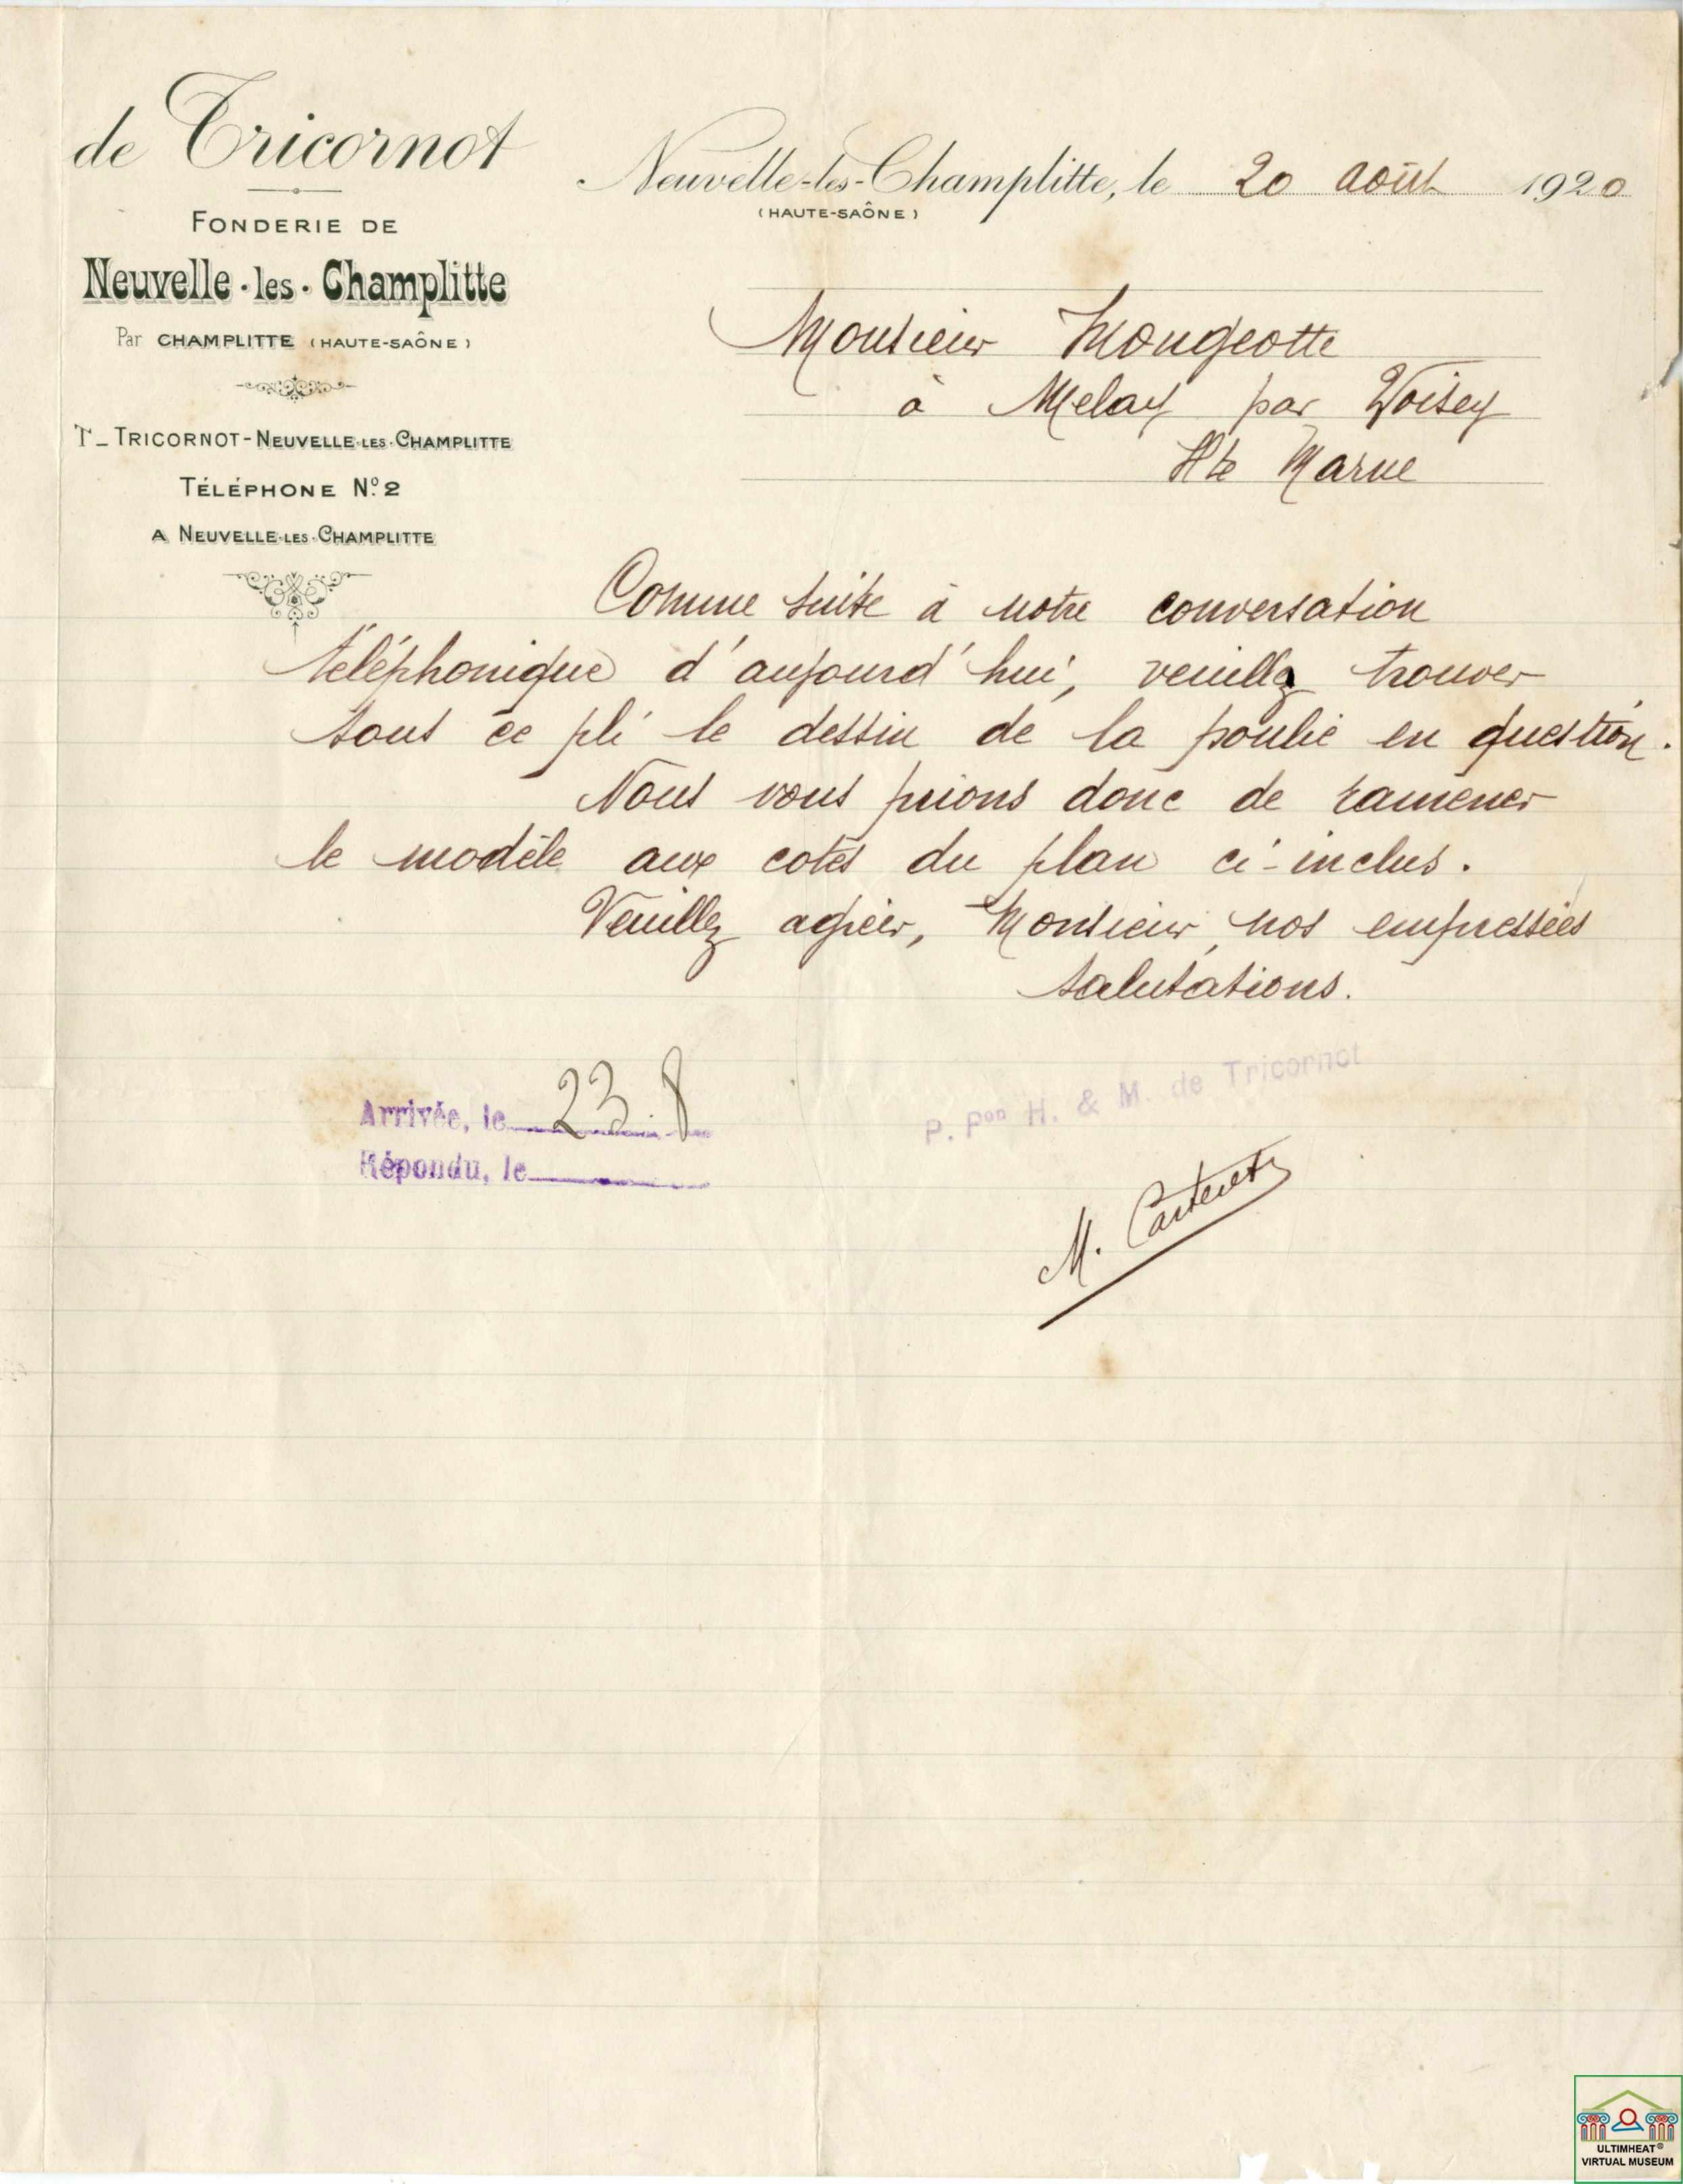 de Tricornot
FONDERIE DE
Neuvelle-les-Champlitte
Par CHAMPLITTE (HAUTE-SAÔNE)
T_TRICORNOT-NEUVELLE-LES-CHAMPLITTE
TÉLÉPHONE No. 2
A NEUVELLE-LES-CHAMPLITTE
Neuvelle-les-Champlitte, le 20 août 1920
(HAUTE-SAÔNE)
Monsieur Mougeotte
à Melay par Voisey
Hte Marne
Comme suite à notre conversation
téléphonique d'aujourd'hui, veuillez trouver
sous ce pli le dessin de la poulie en question.
Nous vous prions donc de ramener
le modèle aux cotes du plan ci-inclus.
Veuillez agréer, Monsieur, nos empressées
salutations.
Arrivée, le 23.8
Répondu, le
P. Pon H. & M. de Tricornot
M. Carteret
ULTIMHEAT®
VIRTUAL MUSEUM